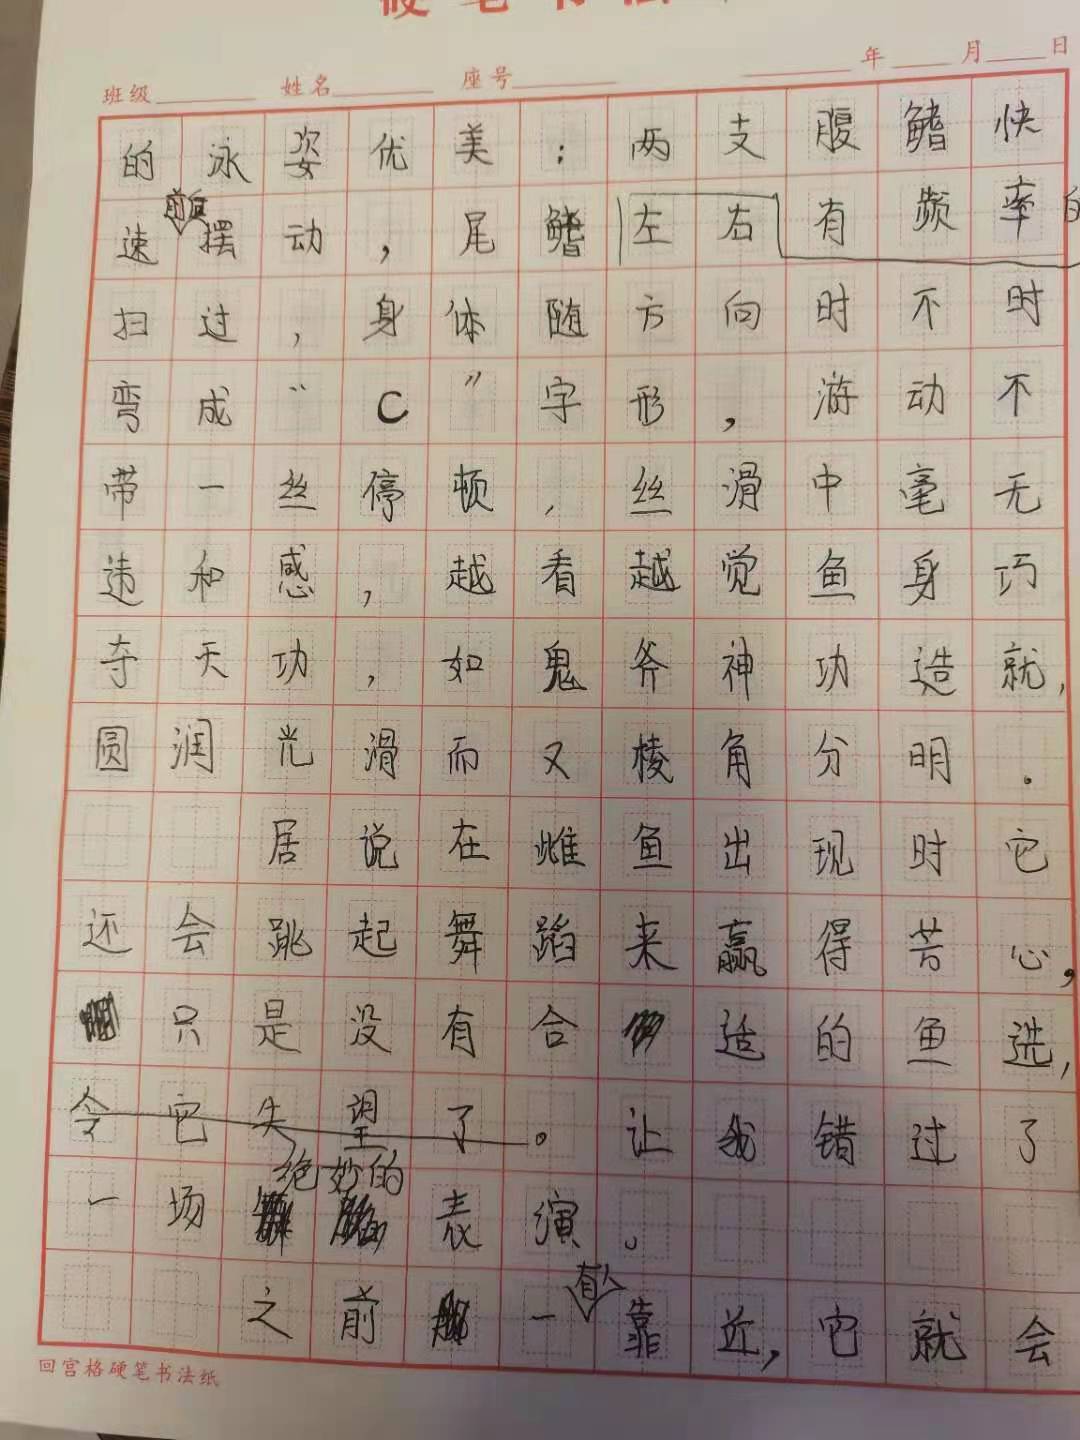 硬笔书法
班级 姓名 座号 年 月 日
的泳姿优美：两支腹鳍快
速前后摆动，尾鳍左右有频率的
扫过，身体随方向时不时
弯成“C”字形，游动不
带一丝停顿，丝滑中毫无
违和感，越看越觉鱼身巧
夺天功，如鬼斧神功造就，
圆润光滑而又棱角分明。
居说在雌鱼出现时它
还会跳起舞蹈来赢得芳心，
只是没有合适的鱼选，
令它失望了。让我错过了
一场绝妙的表演。
之前一有人靠近，它就会
回宫格硬笔书法纸